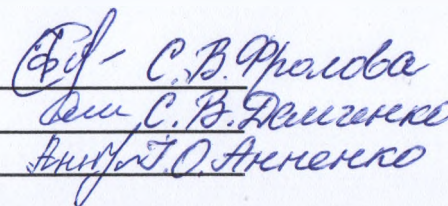 С. В. Фролова
С. В. Демченко
Т. О. Анненко